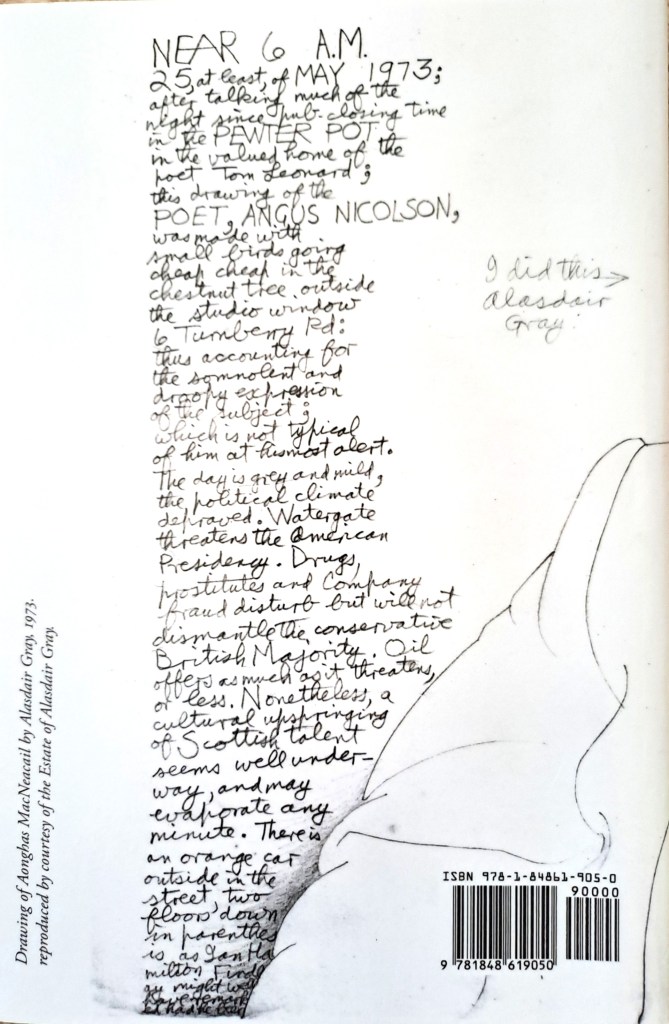 NEAR 6 A.M.
25, at least, of MAY 1973;
after talking much of the
night since pub-closing time
in the PEWTER POT
in the valued home of the
poet Tom Leonard;
this drawing of the
POET, ANGUS NICOLSON,
was made with
small birds going
cheap cheap in the
chestnut tree outside
the studio window
6 Turnberry Rd:
thus accounting for
the somnolent and
droopy expression
of the subject;
which is not typical
of him at his most alert.
The day is grey and mild,
the political climate
depraved. Watergate
threatens the American
Presidency. Drugs,
prostitutes and Company
fraud disturb but will not
dismantle the conservative
British Majority. Oil
offers as much as it threatens,
or less. Nonetheless, a
cultural upspringing
of Scottish talent
seems well under-
way, and may
evaporate any
minute. There is
an orange car
outside in the
street, two
floors down
in parenthes
is, as Ian Ha
milton Finl
ay might well
have remark
ed had he been
I did this →
Alasdair
Gray.
Drawing of Aonghas MacNeacail by Alasdair Gray, 1973.
reproduced by courtesy of the Estate of Alasdair Gray.
ISBN 978-1-84861-905-0
90000
9 781848 619050